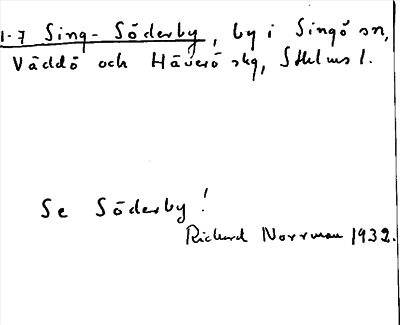 1-7 Sing-Söderby, by i Singö sn,
Väddö och Häverö skg, Sthlms l.
Se Söderby!
Richard Norrman 1932.